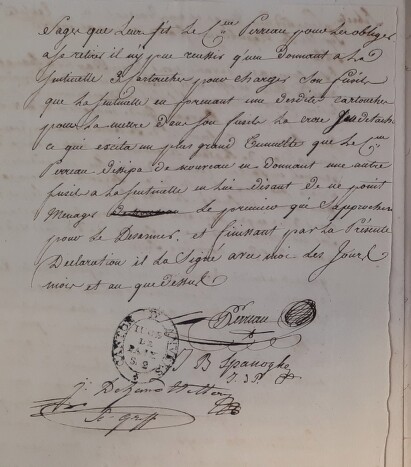 Sages que Leur fit Le C.en Perreau pour les obliger
a se retirer il n'y put reussir qu'en Donnant a La
Sentinelle 3 Cartouches pour charger Son fusil
que la Sentinelle en formant une desdites cartouches
pour la mettre Dans Son fusil La Crosse
ce qui excita un plus grand tumulte que Le C.en
Perreau dissipa de nouveau en donnant une autre
fusil a la Sentinelle en Lui disant de ne point
Menager Le premier qui S'approcherait
pour Le Desarmer. et finissant par La Présente
Declaration il La Signé avec moi Les Jour,
mois et an que dessus
Perreau
B Spanoghe
J. D P.
J. De
Gref